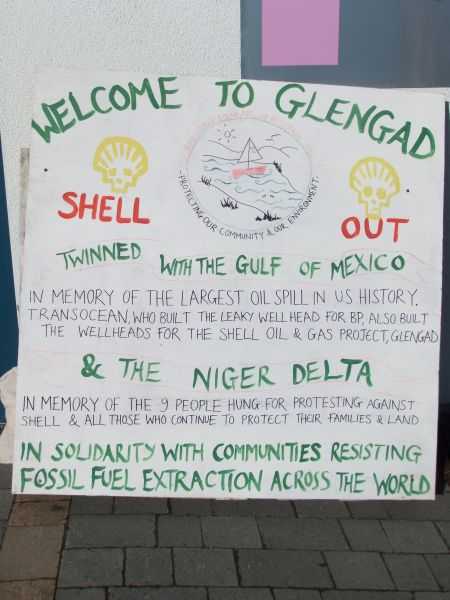 WELCOME TO GLENGAD
PROTECTING OUR COMMUNITY & OUR ENVIRONMENT
SHELL OUT
TWINNED WITH THE GULF OF MEXICO
IN MEMORY OF THE LARGEST OIL SPILL IN US HISTORY.
TRANSOCEAN, WHO BUILT THE LEAKY WELL HEAD FOR BP, ALSO BUILT
THE WELLHEADS FOR THE SHELL OIL & GAS PROJECT, GLENGAD
& THE NIGER DELTA
IN MEMORY OF THE 9 PEOPLE HUNG FOR PROTESTING AGAINST
SHELL & ALL THOSE WHO CONTINUE TO PROTECT THEIR FAMILIES & LAND
IN SOLIDARITY WITH COMMUNITIES RESISTING
FOSSIL FUEL EXTRACTION ACROSS THE WORLD